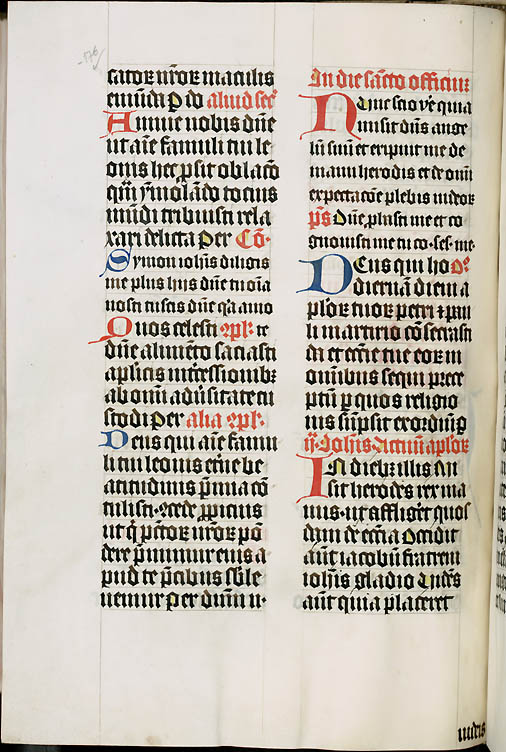 176
sator̄ nr̄or̄ maculis
emūda p̱ do aliud sec̄
Annue nobis dn̄e
ut aīe famuli tui le
onis hec p̱sit oblaco
quā ȳmolādo tocius
mūdi tribuisti rela
xari delicta Per Cō·
Symon ioħis diligis
me plus hijs dn̄e tu oīa
nosti tu scis dn̄e qꝛa amo
Quos celesti ꝯpl: te
dn̄e alimēto saciasti
aplicis intcessionibꝫ
ab omī adūsitate cu
stodi Per alia ꝯpl:
Deus qui aīe famu
li tui leonis et̄ne be
atitudinis p̄mia cō
tulisti ꝯcede ꝓpicius
ut qi pctōr nr̄or pō
dere p̄mimur eius a
pud te p̄cibus s̄ble
uemur Per dn̄m n·
In die sācto officiū
Nūc scio ve quia
misit dn̄s ange
lū suū et eripuit me de
manu herodis et de omī
expectacōe plebis iudeor
p̄s Dn̄e ꝓbasti me et co
gnouisti me tu co·ses·me·
Deus qui ho Oꝛ
diernā diem a
plor tuor petri ⁊ pau
li martirio cōsecrasti
da ecc̄ie tue eor in
omībus sequi prece
ptū p̱ quos religio
nis sūpsit exordiū
Ioħis Actuū aplor
In diebꝫ illis Mi
sit herodes rex ma
nus· ut affliget quos
dam de ecc̄ia Occidit
aūt iacobū fratrem
ioħis gladio Uidēs
aūt quia placeret
iudeis